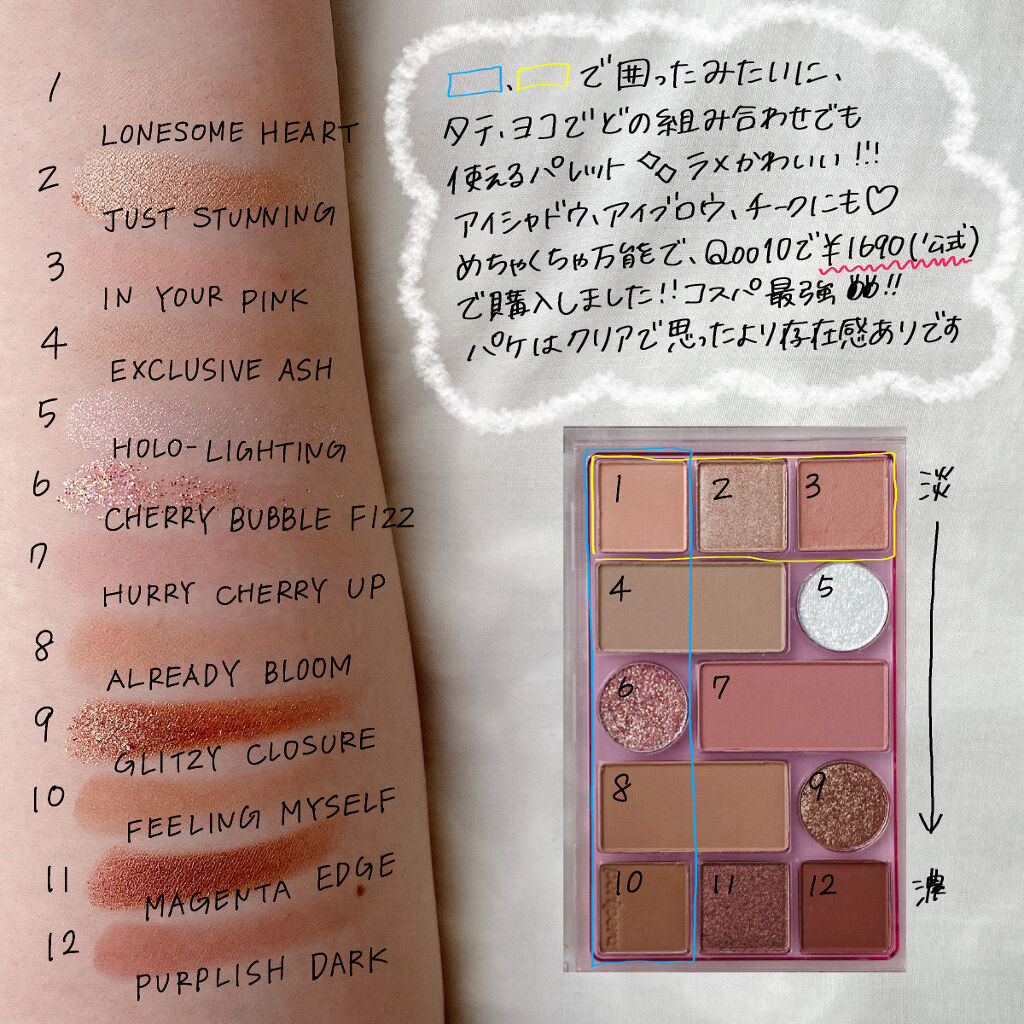 1
LONESOME HEART
2
JUST STUNNING
3
IN YOUR PINK
4
EXCLUSIVE ASH
5
HOLO-LIGHTING
6
CHERRY BUBBLE FIZZ
7
HURRY CHERRY UP
8
ALREADY BLOOM
9
GLITZY CLOSURE
10
FEELING MYSELF
11
MAGENTA EDGE
12
PURPLISH DARK
、で囲ったみたいに、
タテ、ヨコでどの組み合わせでも
使えるパレット ラメかわいい!!!
アイシャドウ、アイブロウ、チークにも♡
めちゃくちゃ万能で、Qoo10で¥1690(公式)
で購入しました!!コスパ最強!!
パケはクリアで思ったより存在感ありです
1 2 3
4 5
6 7
8 9
10 11 12
淡
濃